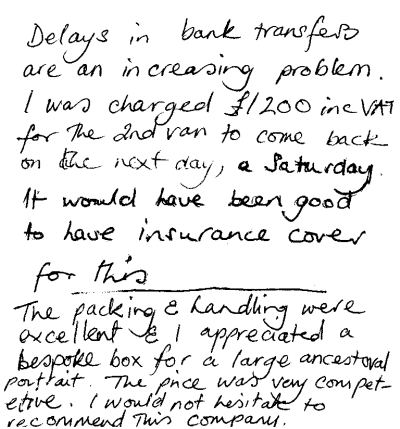 Delays in bank transfers
are an increasing problem.
I was charged £1200 inc VAT
for the 2nd van to come back
on the next day, a Saturday.
It would have been good
to have insurance cover
for this
The packing & handling were
excellent & I appreciated a
bespoke box for a large ancestoral
portrait. The price was very compet-
etive. I would not hesitate to
recommend this company.